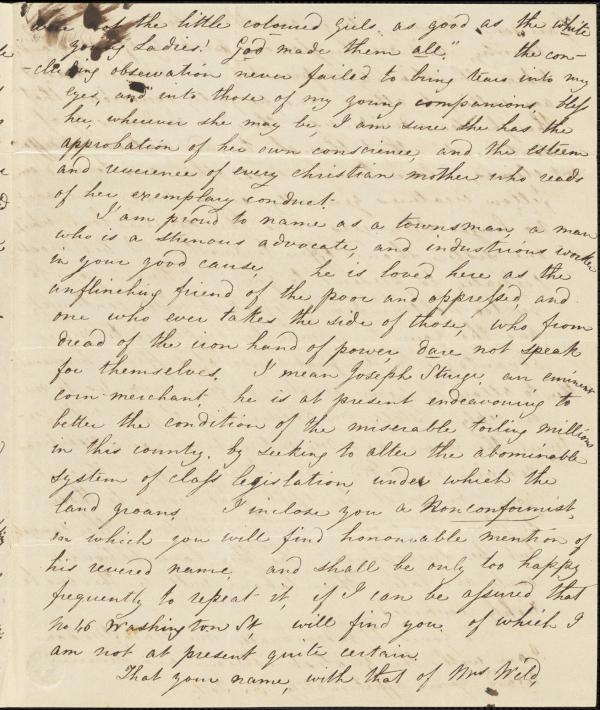 were not the little coloured girls as good as the white
young Ladies! God made them all." the con-
-cluding observation never failed to bring tears into my
Eyes, and into those of my young companions bless
her, wherever she may be, I am sure she has the
approbation of her own conscience, and the esteem
and reverence of every christian mother who reads
of her exemplary conduct.
I am proud to name as a townsman, a man
who is a strenous advocate, and industrious worker
in your good cause, he is loved here as the
unflinching friend of the poor and oppressed, and
one who ever takes the side of those, who from
dread of the iron hand of power dare not speak
for themselves. I mean Joseph Sturge, an eminent
corn-merchant, he is at present endeavouring to
better the condition of the miserable toiling millions
in this county. by seeking to alter the abominable
system of class legislation, under which the
land groans. I inclose you a Nonconformist,
in which you will find honourable mention of
his revered name, and shall be only too happy
frequently to repeat it, if I can be assured that
No 46 Washington St, will find you. of which I
am not at present quite certain.
That your name, with that of Mrs Weld,